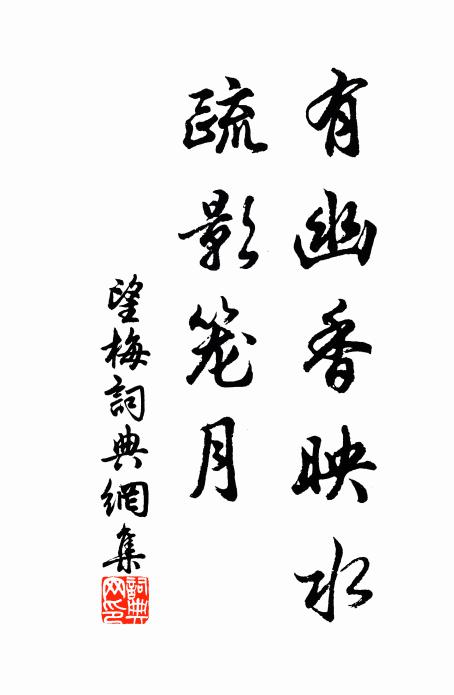 有幽香映水
疏影笼月
望梅詞典網集
詞典网印